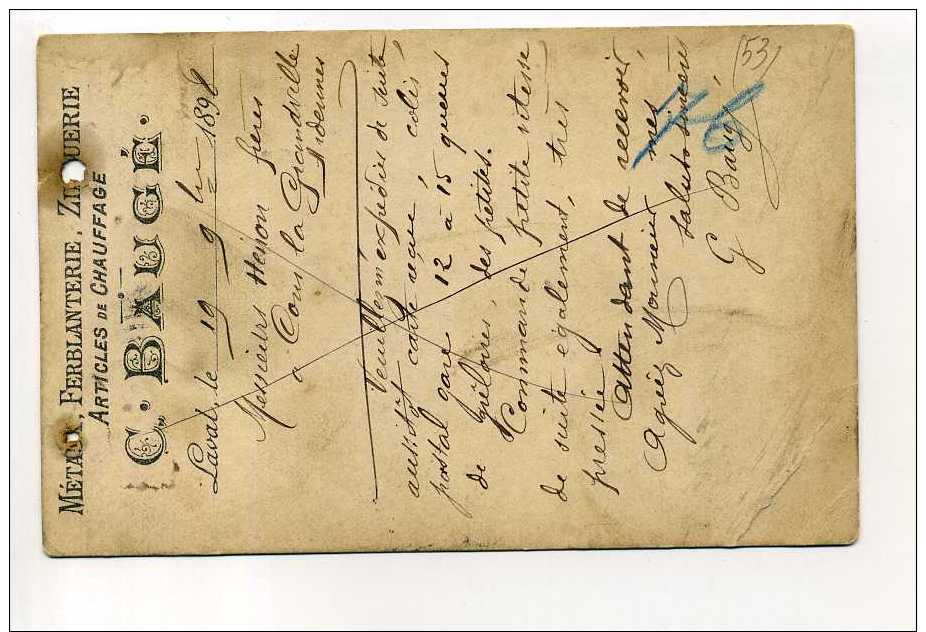 MÉTAUX, FERBLANTERIE, ZINGUERIE
ARTICLES DE CHAUFFAGE
C. BAUGÉ.
Laval, le 19 9bre 1898
Messieurs Hession frères
a Cons la Grandville
Ardennes
Veuillez m'expédier de suite
aussitôt carte reçue, colis
postal gare 12 à 15 queues
de des petites.
Commande petite vitesse
de suite également, très
pressée
Attendant de recevoir,
Agréez Monsieur mes
salutations
G Baugé
(53)